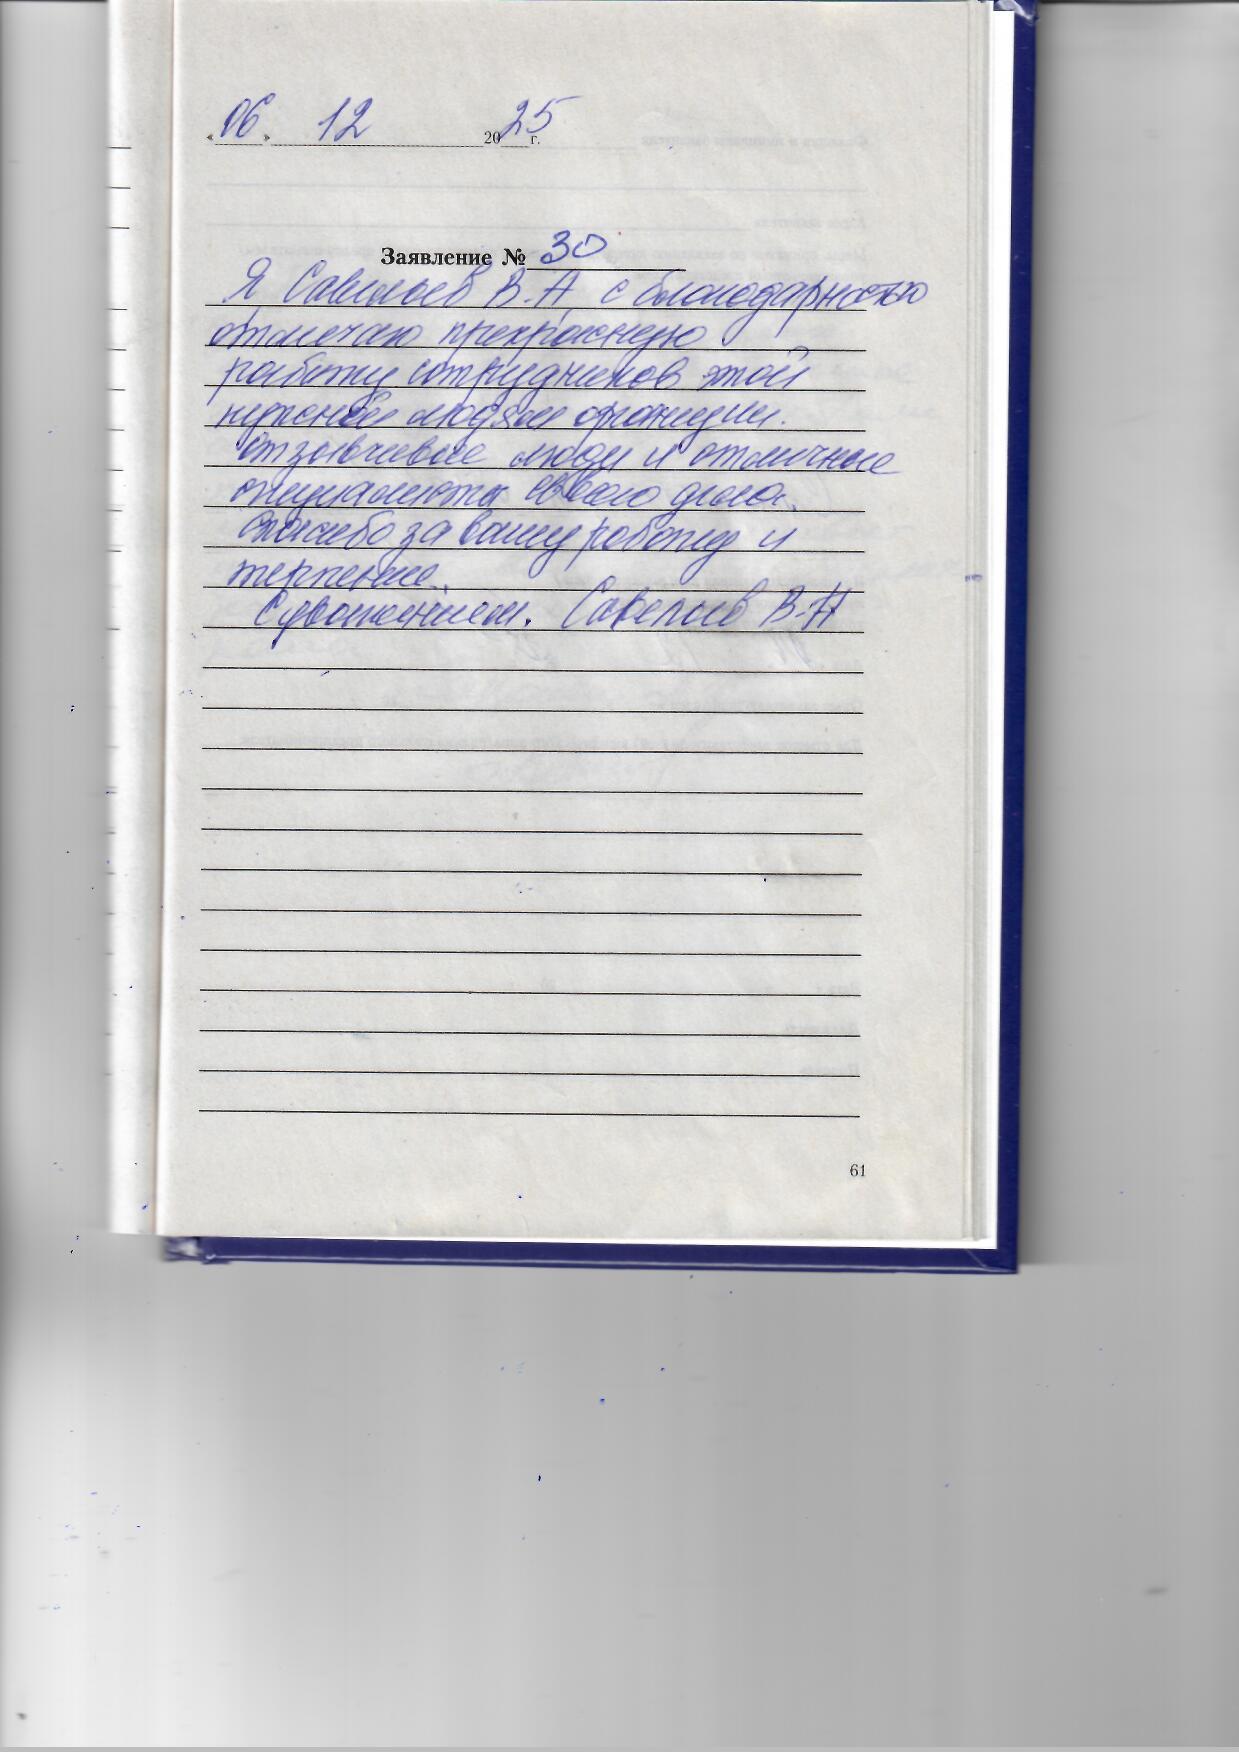 «06» 12 2025 г.
Заявление № 30
Я Савельев В.А с благодарностью
отмечаю прекрасную
работу сотрудников этой
нужной людям
отзывчивые люди и отличные
специалисты своего дела.
Спасибо за вашу работу и
терпение.
С уважением. Савельев В-А
61